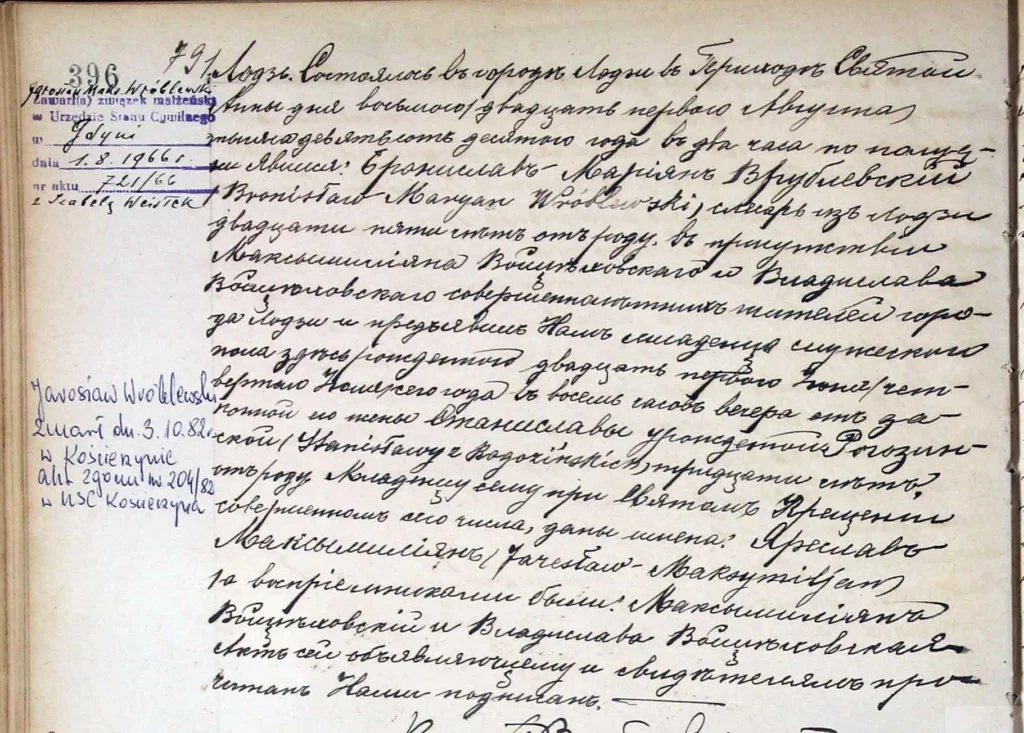 396
791
Jarosław Maks. Wróblewski
Zawarł(a) związek małżeński
w Urzędzie Stanu Cywilnego
w Gdyni
dnia 1.8.1966 r.
nr aktu 721/66
z Izabelą Weistek
Лодзь. Состоялось въ городѣ Лодзи въ Приходѣ Святой
Анны дня восьмого (двадцать перваго Августа)
тысяча девятьсотъ десятого года въ два часа по полуд-
ни Явился: Брониславъ Маріянъ Врублевскій
(Bronisław Maryan Wróblewski) слесарь изъ Лодзи
двадцати пяти лѣтъ отъ роду, въ присутствіи
Максымиліяна Войцѣховскаго и Владислава
Войцѣховскаго совершеннолѣтнихъ жителей горо-
да Лодзи и предъявилъ Намъ младенца мужескаго
пола здѣсь рожденнаго двадцать перваго Іюня (чет-
вертаго Іюля) сего года въ восемь часовъ вечера отъ за-
конной его жены Станиславы урожденной Рогозин-
ской (Stanisławy z Rogozińskich) тридцати лѣтъ
отъ роду Младенцу сему при Святомъ Крещеніи
совершенномъ сего числа, даны имена: Ярославъ
Максымиліянъ (Jarosław Maksymiljan)
а воспріемниками были: Максымиліянъ
Войцѣховскій и Владислава Войцѣховская
Актъ сей объявляющему и свидѣтелямъ про-
читанъ Нами подписанъ.
Jarosław Wróblewski
zmarł dn. 3.10.82 r.
w Kościerzynie
akt zgonu nr 204/82
w USC Kościerzyna